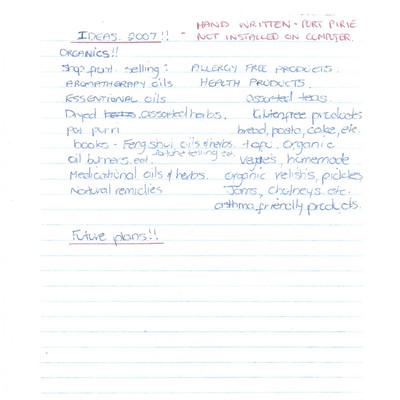 IDEAS. 2007!! - HAND WRITTEN - PORT PIRIE
NOT INSTALLED ON COMPUTER.
ORGANICS!!
Shop front selling: ALLERGY FREE PRODUCTS.
AROMATHERAPY oils HEALTH PRODUCTS.
ESSENTIONAL oils assorted teas.
Dryed herbs, assorted herbs. Glutenfree products
Pot purri bread, pasta, cake, etc.
books - Feng shui, oils & herbs. tofu. organic
fortune telling
oil burners. ect. vegie's, homemade
Medicational oils & herbs. organic relish's, pickles
Natural remidies Jams, Chutneys. etc.
asthma friendly products.
Future plans!!